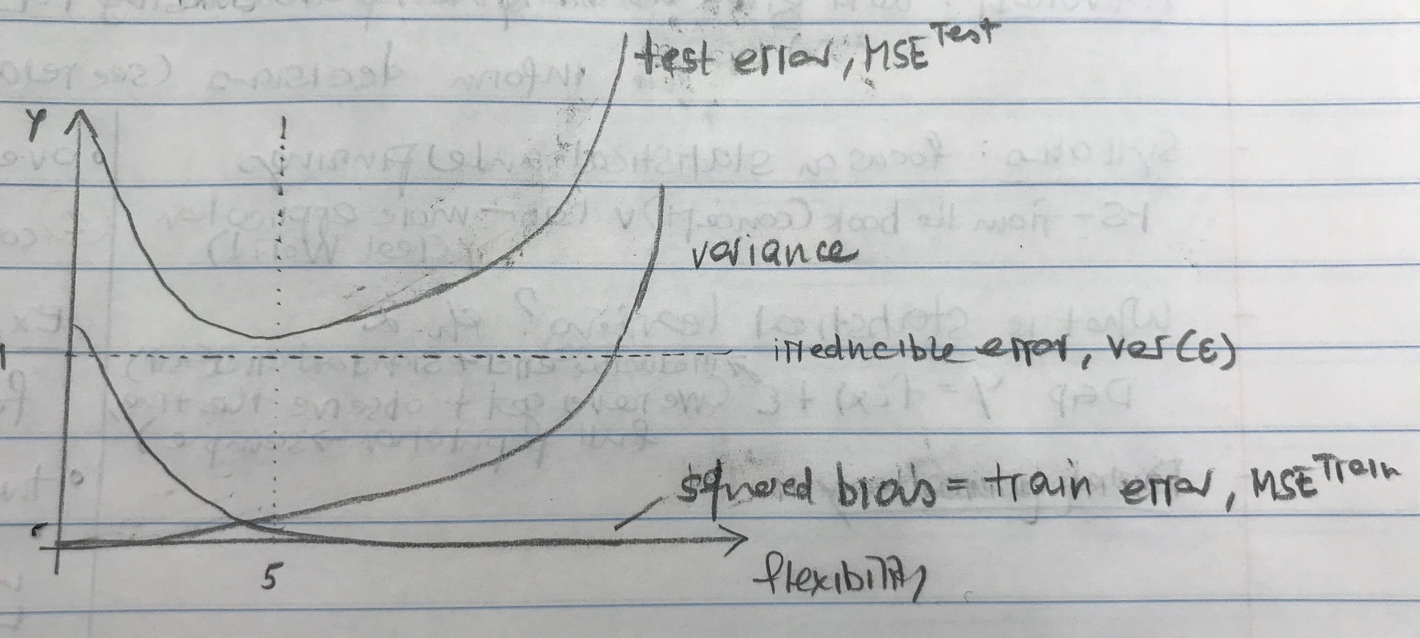 test error, MSE^Test
Y
variance
irreducible error, var(ε)
squared bias = train error, MSE^Train
5
flexibility